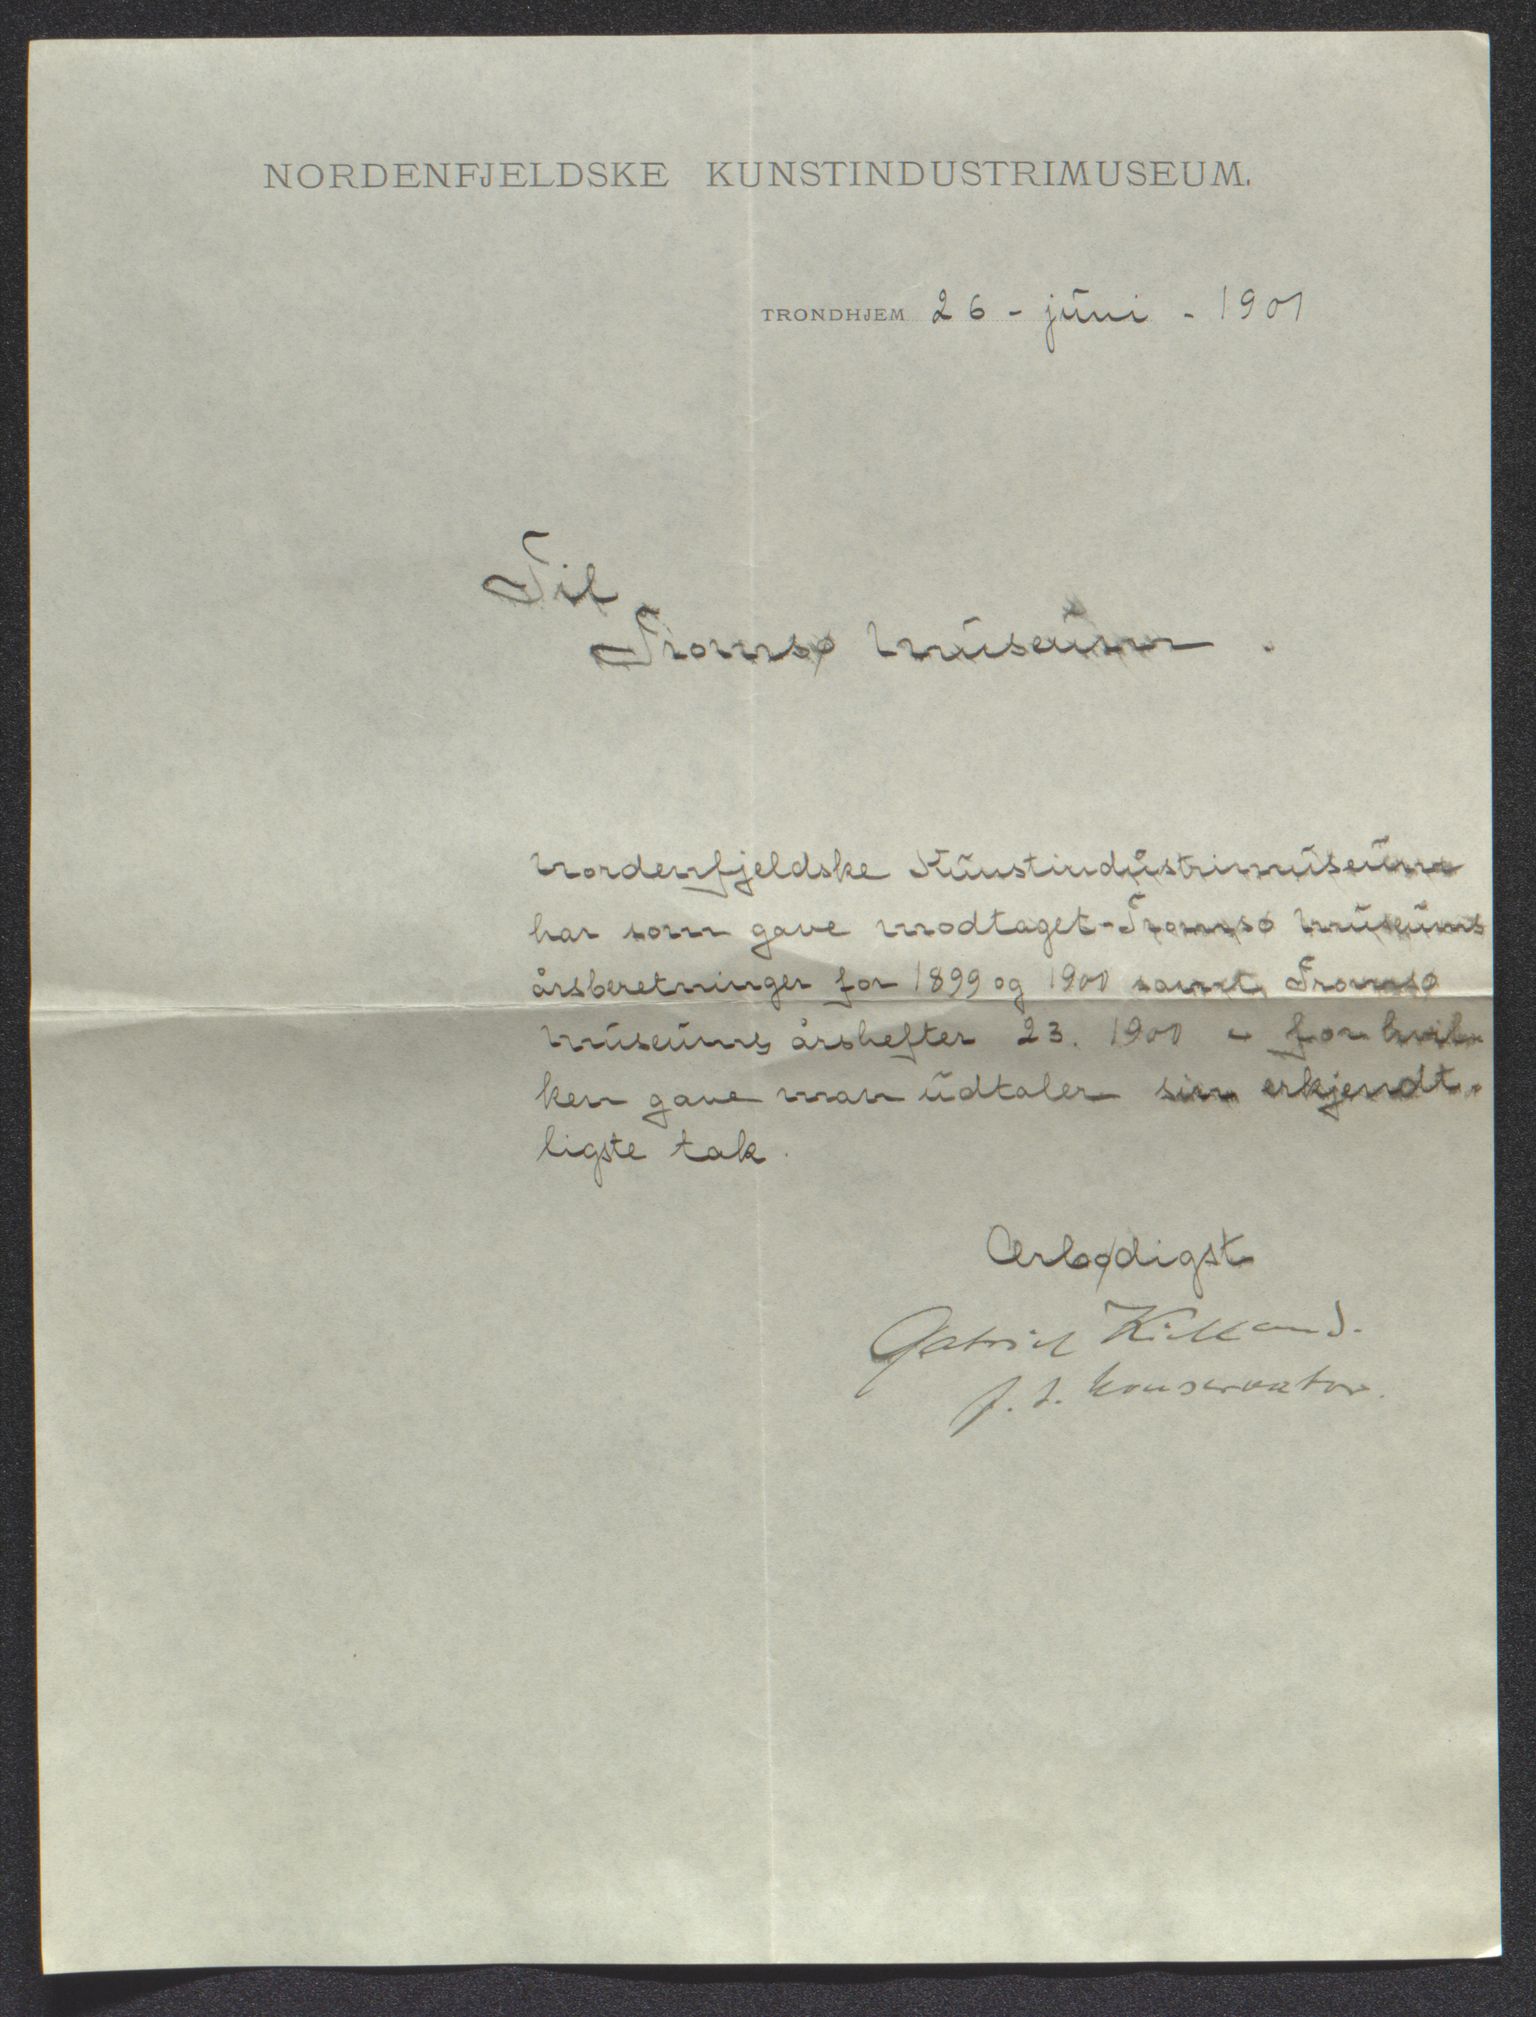 NORDENFJELDSKE KUNSTINDUSTRIMUSEUM.
TRONDHJEM 26 - juni - 1901
Til
Tromsø museum.
Nordenfjeldske Kunstindustrimuseum
har som gave modtaget Tromsø museums
årsberetninger for 1899 og 1900 samt Tromsø
museums årshefter 23. 1900 - for hvil-
ken gave man udtaler sin erkjendt-
ligste tak.
Ærbødigst
Gabriel Kielland.
f. t. konservator.